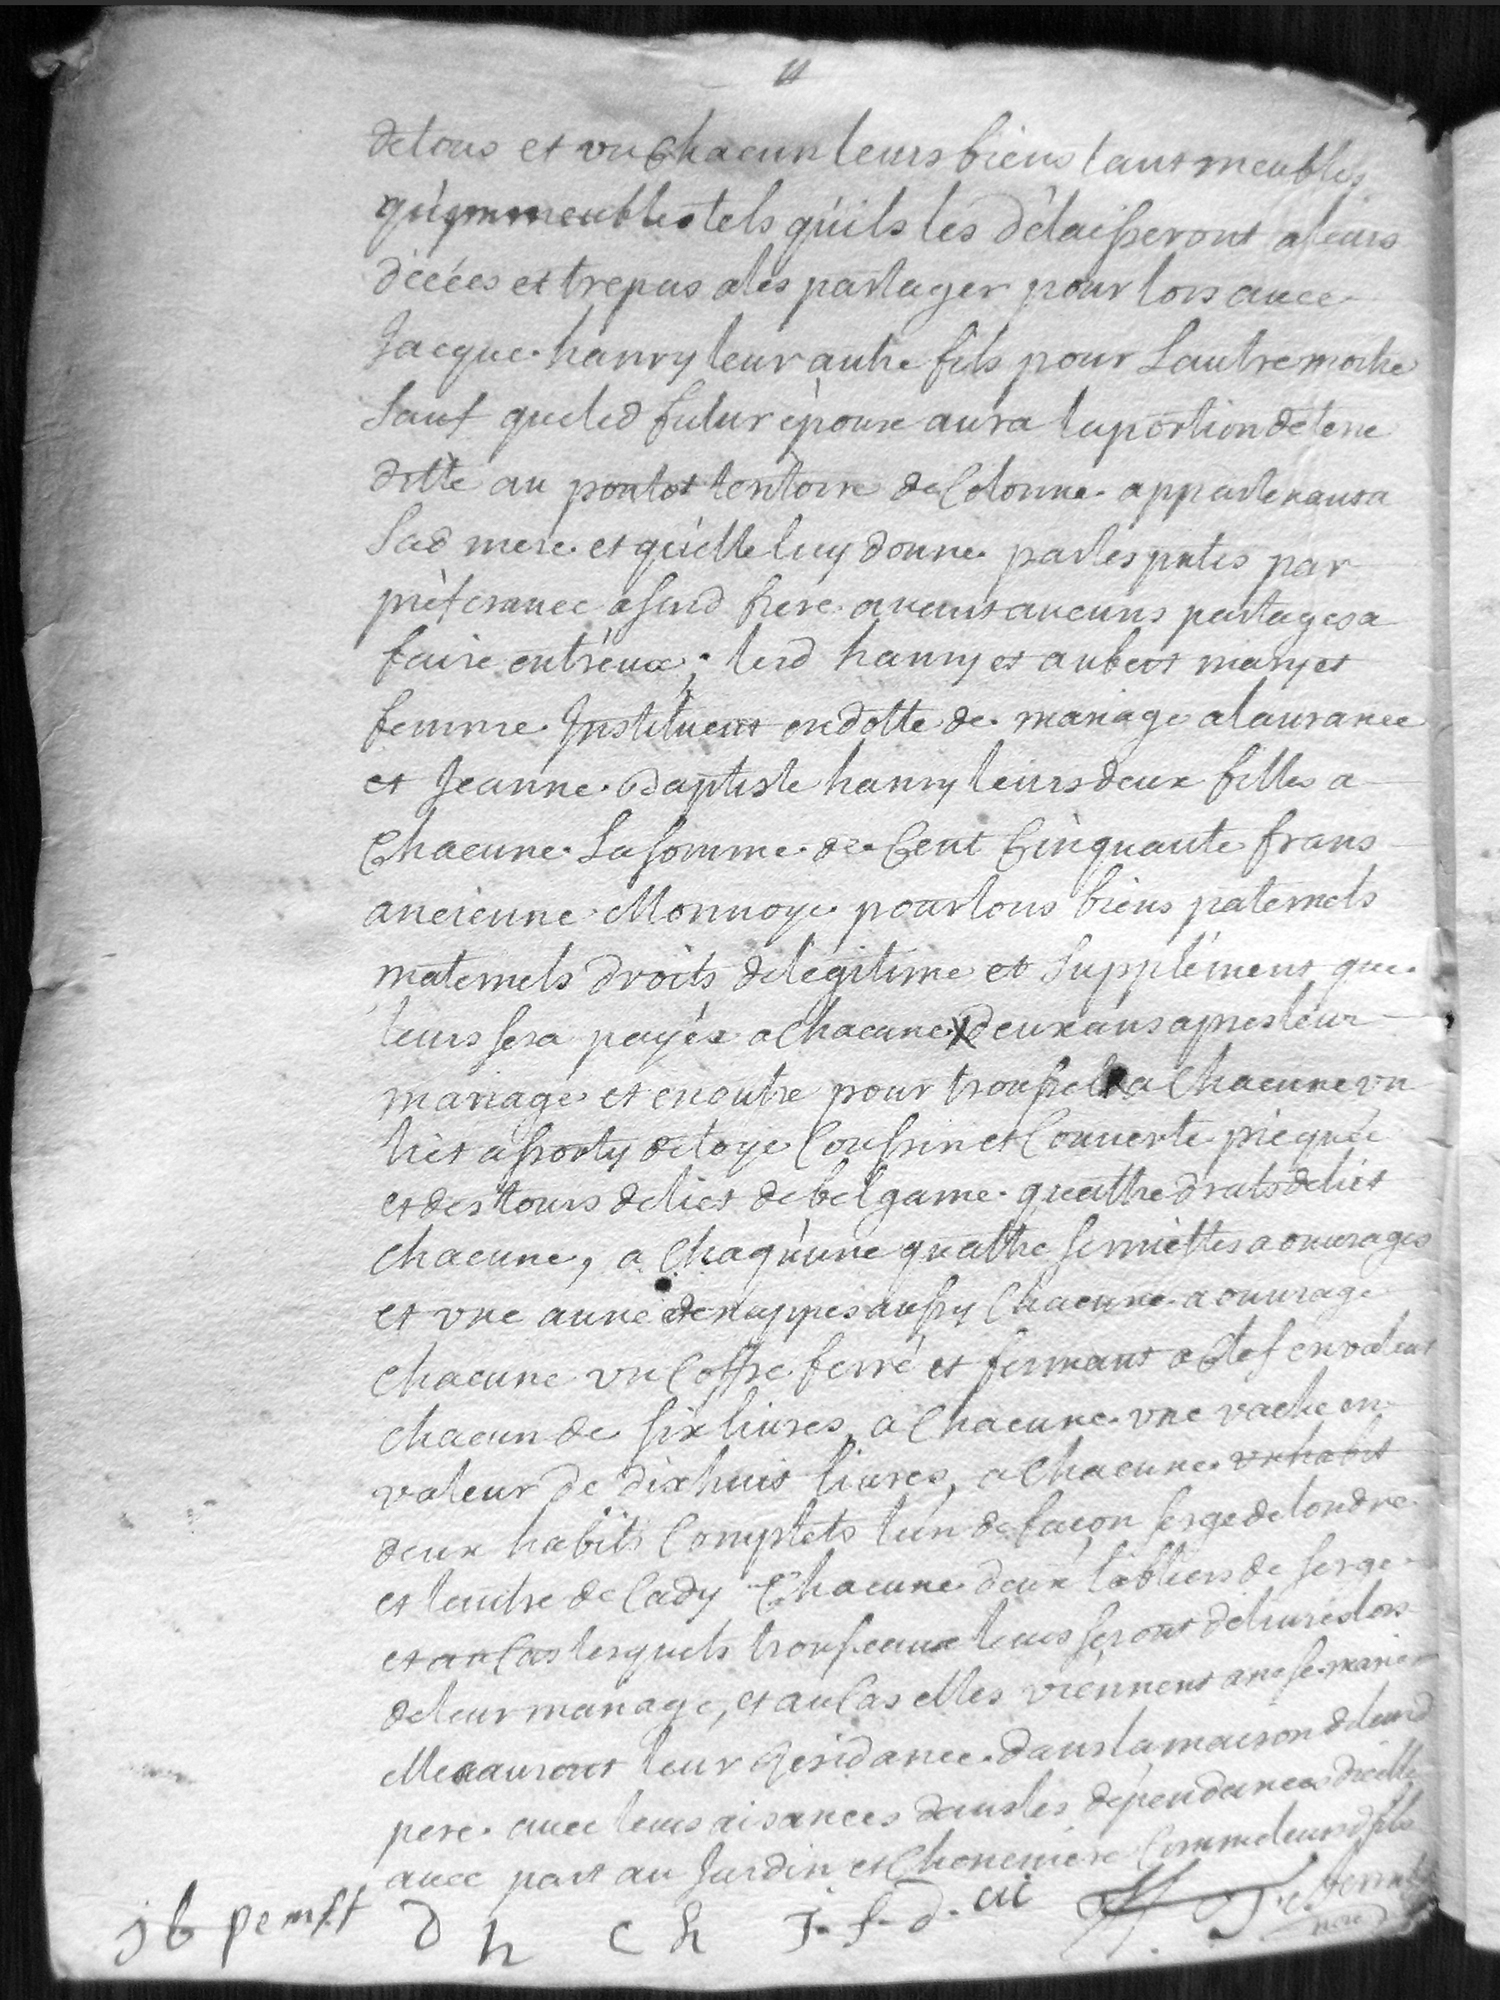 detous et vn Chacun leurs biens tant meubles
qu'ymmeubles tels qu'ils les délaisseront a leurs
décées et trepas a les partager pour lors auec
Jacque hanry leur autre fils pour Lautre moitie
Sauf queled futur époux aura la portion de terre
ditte au territoire de Colonne appartenant a
Sad mere et qu'elle luy donne par les pntes par
préferance a sond frere auant aucuns partages a
faire entr'eux; lesd hanry et aubert mary et
femme Jnstituent en dotte de mariage a laurance
et Jeanne Baptiste hanry leurs deux filles a
Chacune La somme de Cent Cinquante frans
ancienne Monnoye pour tous biens paternels
maternels droits de légitime et Supplément que
leurs sera payée a Chacune deux ans apres leur
mariage et en outre pour troussel a Chacune vn
lict assorty de toye Coussin et Couuerte piequée
et des tours de lict de bel game quatthe drats de lict
chacune, a Chaqu'une quatthe seruiettes a ouurages
et vne aune de nappes aussy Chacune a ouurage
chacune vn Coffre ferré et fermant a Clef en valeur
chacun de six liures, a Chacune vne vache en
valeur de dixhuit liures, a Chacune vn habit
deux habits Complets l'un de façon serge de londre
et lautre de Cady Chacune deux tabliers de serge
et au Cas lesquels trousseaux leurs seront déliurés lors
de leur mariage, et au Cas elles viennent a ne se marier
elles auront leur Residance dans la maison de leurd
pere auec leurs aisances dans les dépendances d'icelle
auec part au Jardin et Cheneuiere Comme leursd fils
j b pemst D h C h J. f. d. cui